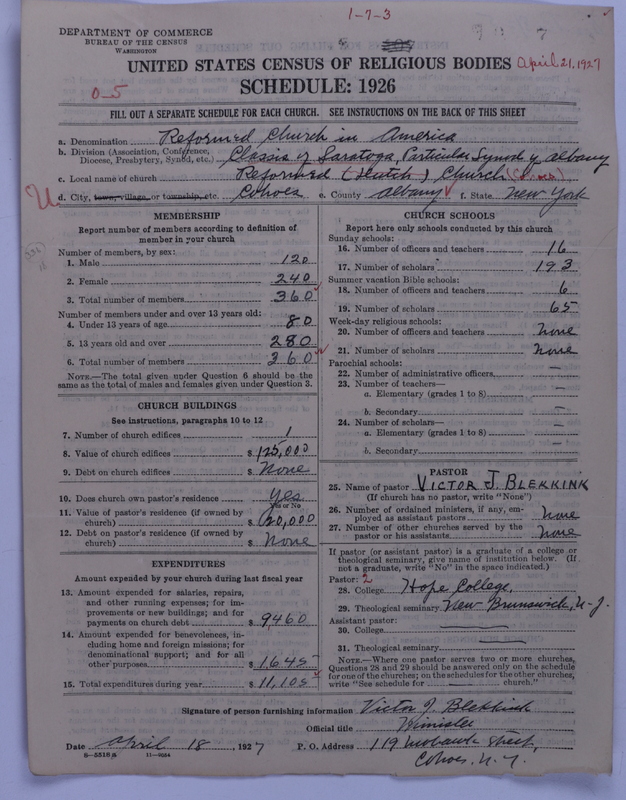 1-7-3
DEPARTMENT OF COMMERCE
BUREAU OF THE CENSUS
WASHINGTON
UNITED STATES CENSUS OF RELIGIOUS BODIES April 21, 1927
SCHEDULE: 1926
0-5
FILL OUT A SEPARATE SCHEDULE FOR EACH CHURCH. SEE INSTRUCTIONS ON THE BACK OF THIS SHEET
a. Denomination Reformed Church in America
b. Division (Association, Conference, Diocese, Presbytery, Synod, etc.) Classis of Saratoga, Particular Synod of Albany
c. Local name of church Reformed (Dutch) Church
d. City, town, village, or township, etc. Cohoes e. County Albany f. State New York
MEMBERSHIP
Report number of members according to definition of
member in your church
Number of members, by sex:
1. Male 120
2. Female 240
3. Total number of members 360
Number of members under and over 13 years old:
4. Under 13 years of age 80
5. 13 years old and over 280
6. Total number of members 360
NOTE.—The total given under Question 6 should be the
same as the total of males and females given under Question 3.
CHURCH BUILDINGS
See instructions, paragraphs 10 to 12
7. Number of church edifices 1
8. Value of church edifices $ 125,000
9. Debt on church edifices $ None
10. Does church own pastor's residence Yes
Yes or No
11. Value of pastor's residence (if owned by
church) $ 20,000
12. Debt on pastor's residence (if owned by
church) $ None
EXPENDITURES
Amount expended by your church during last fiscal year
13. Amount expended for salaries, repairs,
and other running expenses; for im-
provements or new buildings; and for
payments on church debt $ 9460
14. Amount expended for benevolences, in-
cluding home and foreign missions; for
denominational support; and for all
other purposes $ 1645
15. Total expenditures during year $ 11,105
CHURCH SCHOOLS
Report here only schools conducted by this church
Sunday schools:
16. Number of officers and teachers 16
17. Number of scholars 193
Summer vacation Bible schools:
18. Number of officers and teachers 6
19. Number of scholars 65
Week-day religious schools:
20. Number of officers and teachers None
21. Number of scholars None
Parochial schools:
22. Number of administrative officers —
23. Number of teachers—
a. Elementary (grades 1 to 8) —
b. Secondary —
24. Number of scholars—
a. Elementary (grades 1 to 8) —
b. Secondary —
PASTOR
25. Name of pastor VICTOR J. BLEKKINK
(If church has no pastor, write "None")
26. Number of ordained ministers, if any, em-
ployed as assistant pastors None
27. Number of other churches served by the
pastor or his assistants None
If pastor (or assistant pastor) is a graduate of a college or
theological seminary, give name of institution below. (If
not a graduate, write "No" in the space indicated.)
Pastor: 2
28. College Hope College,
29. Theological seminary New Brunswick, N. J.
Assistant pastor:
30. College —
31. Theological seminary —
NOTE.—Where one pastor serves two or more churches,
Questions 28 and 29 should be answered only on the schedule
for one of the churches; on the schedules for the other churches,
write "See schedule for ——— church."
Signature of person furnishing information Victor J. Blekkink
Official title Minister
Date April 18, 1927 P. O. Address 119 Mohawk Street,
Cohoes, N. Y.
8-5516a 11-9054